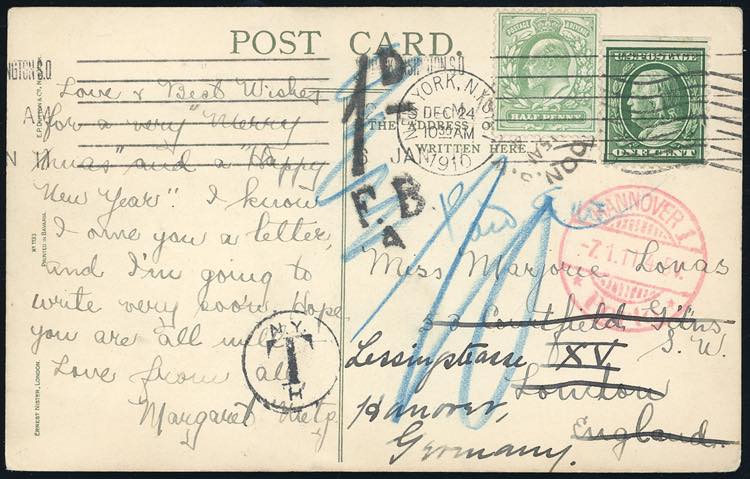 POST CARD.
Love & Best Wishes
for a very "Merry
Xmas" and a "Happy
New Year". I know
I owe you a letter,
and I'm going to
write very soon. Hope
you are all well
Love from all
Margaret
E.P. DUTTON & CO.
PRINTED IN BAVARIA.
No 1193
ERNEST NISTER, LONDON.
THE ADDRESS
WRITTEN HERE
1D
F.B
A
N.Y.
T
NEW YORK, N.Y.
DEC 24
1030AM
JAN
1910
POSTAGE REVENUE
HALF PENNY
U.S. POSTAGE
ONE CENT
HANNOVER 1
-7.1.11
Miss Marjorie Lovas
33 Courtfield Gdns
S.W.
London
England.
Lessingstrasse XV
Hanover,
Germany.